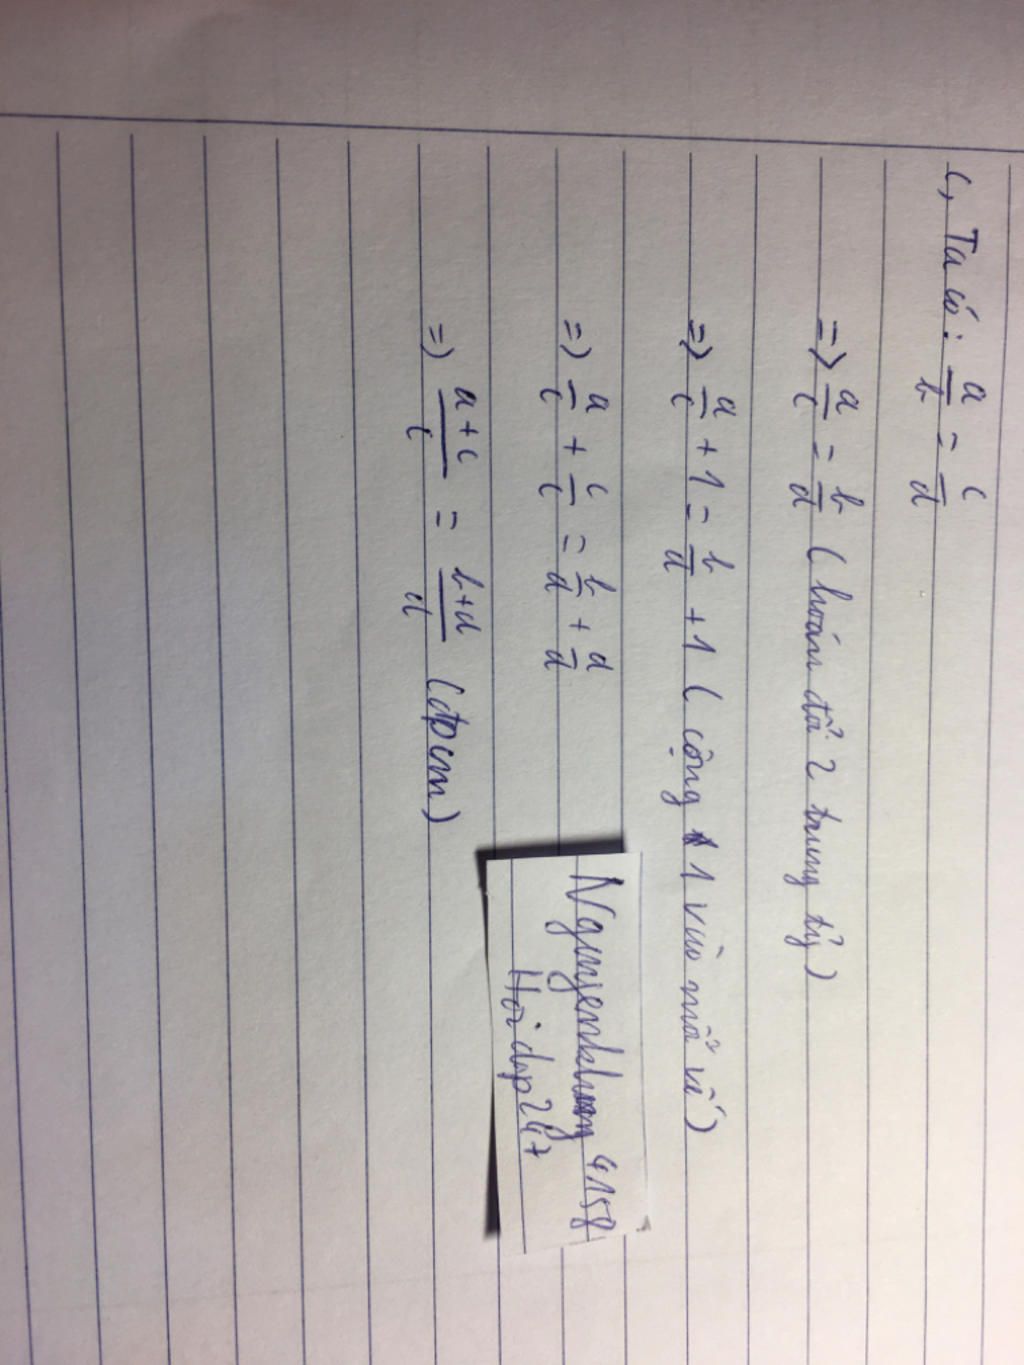 c, Ta có: a/b = c/d
=> a/c = b/d (hoán đổi 2 trung tỷ)
=> a/c + 1 = b/d + 1 (cộng 1 vào mỗi vế)
=> a/c + c/c = b/d + d/d
=> a+c/c = b+d/d (đpcm)
4158
Hoidap247